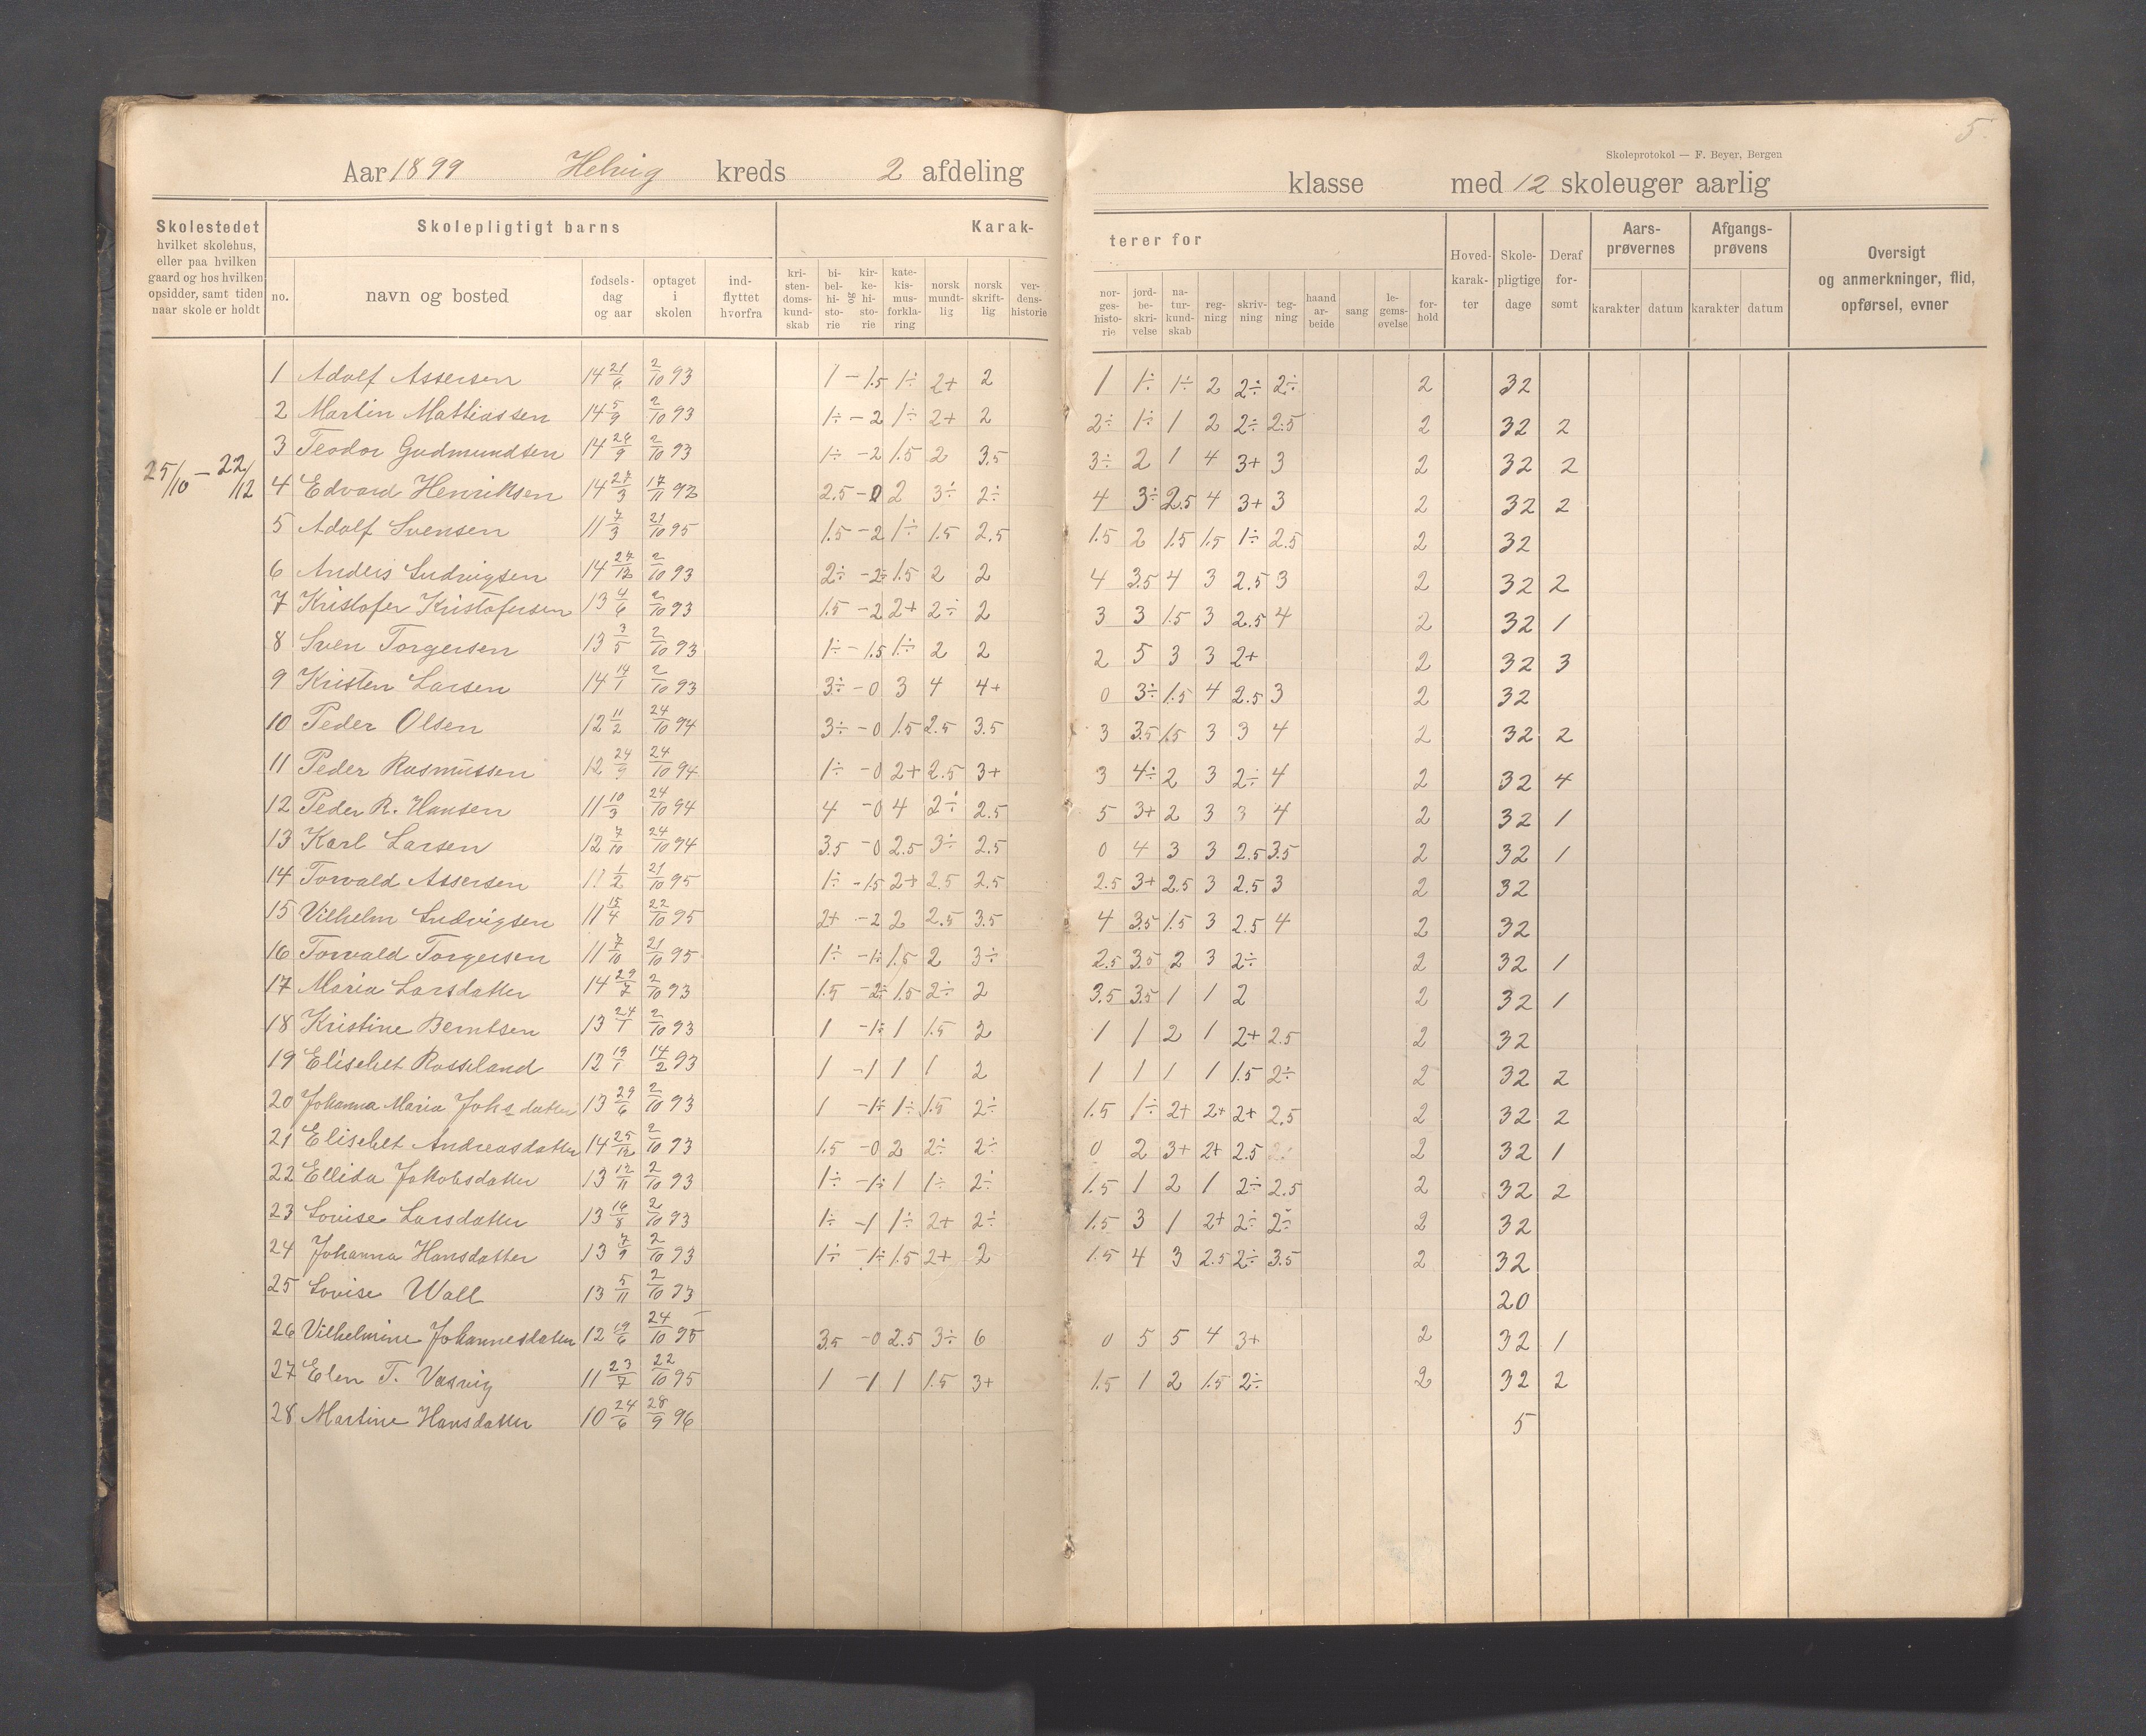 5.
Skoleprotokol — F. Beyer, Bergen
Aar 1899 Helvig kreds 2 afdeling klasse med 12 skoleuger aarlig
Skolestedet hvilket skolehus, eller paa hvilken gaard og hos hvilken opsidder, samt tiden naar skole er holdt
Skolepligtigt barns
no. navn og bosted fødsels-dag og aar optaget i skolen ind-flyttet hvorfra
Karak-terer for
kri-sten-doms-kund-skab bi-bel-hi-sto-rie og kir-ke-hi-sto-rie kate-kis-mus-forkla-ring norsk mundt-lig norsk skrift-lig ver-dens-historie nor-ges-histo-rie jord-be-skri-velse na-tur-kund-skab reg-ning skriv-ning teg-ning haand ar-beide sang le-gems-øvelse for-hold
Hoved-karak-ter Skole-pligtige dage Deraf for-sømt
Aars-prøvernes karakter datum
Afgangs-prøvens karakter datum
Oversigt og anmerkninger, flid, opførsel, evner
25/10 — 22/12
1 Adolf Assersen 14 21/6 2/10 93 1 - 1.5 1÷ 2+ 2 1 1÷ 1÷ 2 2÷ 2÷ 2 32
2 Martin Mattiassen 14 5/9 2/10 93 1÷ - 2 1÷ 2+ 2 2÷ 1÷ 1 2 2÷ 2.5 2 32 2
3 Teodor Gudmundsen 14 24/9 2/10 93 1÷ - 2 1.5 2 3.5 3÷ 2 1 4 3+ 3 2 32 2
4 Edvard Henriksen 14 27/3 17/11 92 2.5 - 0 2 3÷ 2÷ 4 3÷ 2.5 4 3+ 3 2 32 2
5 Adolf Svensen 11 7/3 21/10 95 1.5 - 2 1÷ 1.5 2.5 1.5 2 1.5 1.5 1÷ 2.5 2 32
6 Anders Ludvigsen 14 27/12 2/10 93 2÷ - 2÷ 1.5 2 2 4 3.5 4 3 2.5 3 2 32 2
7 Kristofer Kristofersen 13 4/6 2/10 93 1.5 - 2 2+ 2÷ 2 3 3 1.5 3 2.5 4 2 32 1
8 Sven Torgersen 13 3/5 2/10 93 1÷ - 1.5 1÷ 2 2 2 5 3 3 2+ 2 32 3
9 Kristen Larsen 14 14/1 2/10 93 3÷ - 0 3 4 4+ 0 3÷ 1.5 4 2.5 3 2 32
10 Peder Olsen 12 11/2 24/10 94 3÷ - 0 1.5 2.5 3.5 3 3.5 1.5 3 3 4 2 32 2
11 Peder Rasmussen 12 24/9 24/10 94 1÷ - 0 2+ 2.5 3+ 3 4÷ 2 3 2÷ 4 2 32 4
12 Peder R. Hansen 11 10/3 24/10 94 4 - 0 4 2÷ 2.5 5 3+ 2 3 3 4 2 32 1
13 Karl Larsen 12 7/10 24/10 94 3.5 - 0 2.5 3÷ 2.5 0 4 3 3 2.5 3.5 2 32 1
14 Torvald Assersen 11 1/2 21/10 95 1÷ - 1.5 2+ 2.5 2.5 2.5 3+ 2.5 3 2.5 3 2 32
15 Vilhelm Ludvigsen 11 15/4 22/10 95 2+ - 2 2 2.5 3.5 4 3.5 1.5 3 2.5 4 2 32
16 Torvald Torgersen 11 7/10 21/10 95 1÷ - 1÷ 1.5 2 3÷ 2.5 3.5 2 3 2÷ 2 32 1
17 Maria Larsdatter 14 29/7 2/10 93 1.5 - 2÷ 1.5 2÷ 2 3.5 3.5 1 1 2 2 32 1
18 Kristine Berntsen 13 24/1 2/10 93 1 - 1÷ 1 1.5 2 1 1 2 1 2+ 2.5 2 32
19 Elisebet Rosseland 12 19/1 14/2 93 1 - 1 1 1 2 1 1 1 1 1.5 2÷ 2 32 2
20 Johanna Maria Johs datter 13 29/6 2/10 93 1 - 1÷ 1÷ 1.5 2÷ 1.5 1÷ 2+ 2+ 2+ 2.5 2 32 2
21 Elisebet Andreasdatter 14 25/12 2/10 93 1.5 - 0 2 2÷ 2÷ 0 2 3+ 2+ 2.5 2 32 1
22 Ellida Jakobsdatter 13 12/11 2/10 93 1÷ - 1÷ 1 1÷ 2÷ 1.5 1 2 1 2÷ 2.5 2 32 2
23 Lovise Larsdatter 13 16/8 2/10 93 1÷ - 1 1÷ 2+ 2÷ 1.5 3 1 2+ 2÷ 2÷ 2 32
24 Johanna Hansdatter 13 7/9 2/10 93 1÷ - 1÷ 1.5 2+ 2 1.5 4 3 2.5 2÷ 3.5 2 32
25 Lovise Wall 13 5/11 2/10 93 20
26 Vilhelmine Johannesdatter 12 19/6 24/10 95 3.5 - 0 2.5 3÷ 6 0 5 5 4 3+ 2 32 1
27 Elen T. Vasvig 11 23/7 22/10 95 1 - 1 1 1.5 3+ 1.5 1 2 1.5 2÷ 2 32 2
28 Martine Hansdatter 10 24/6 28/9 96 5